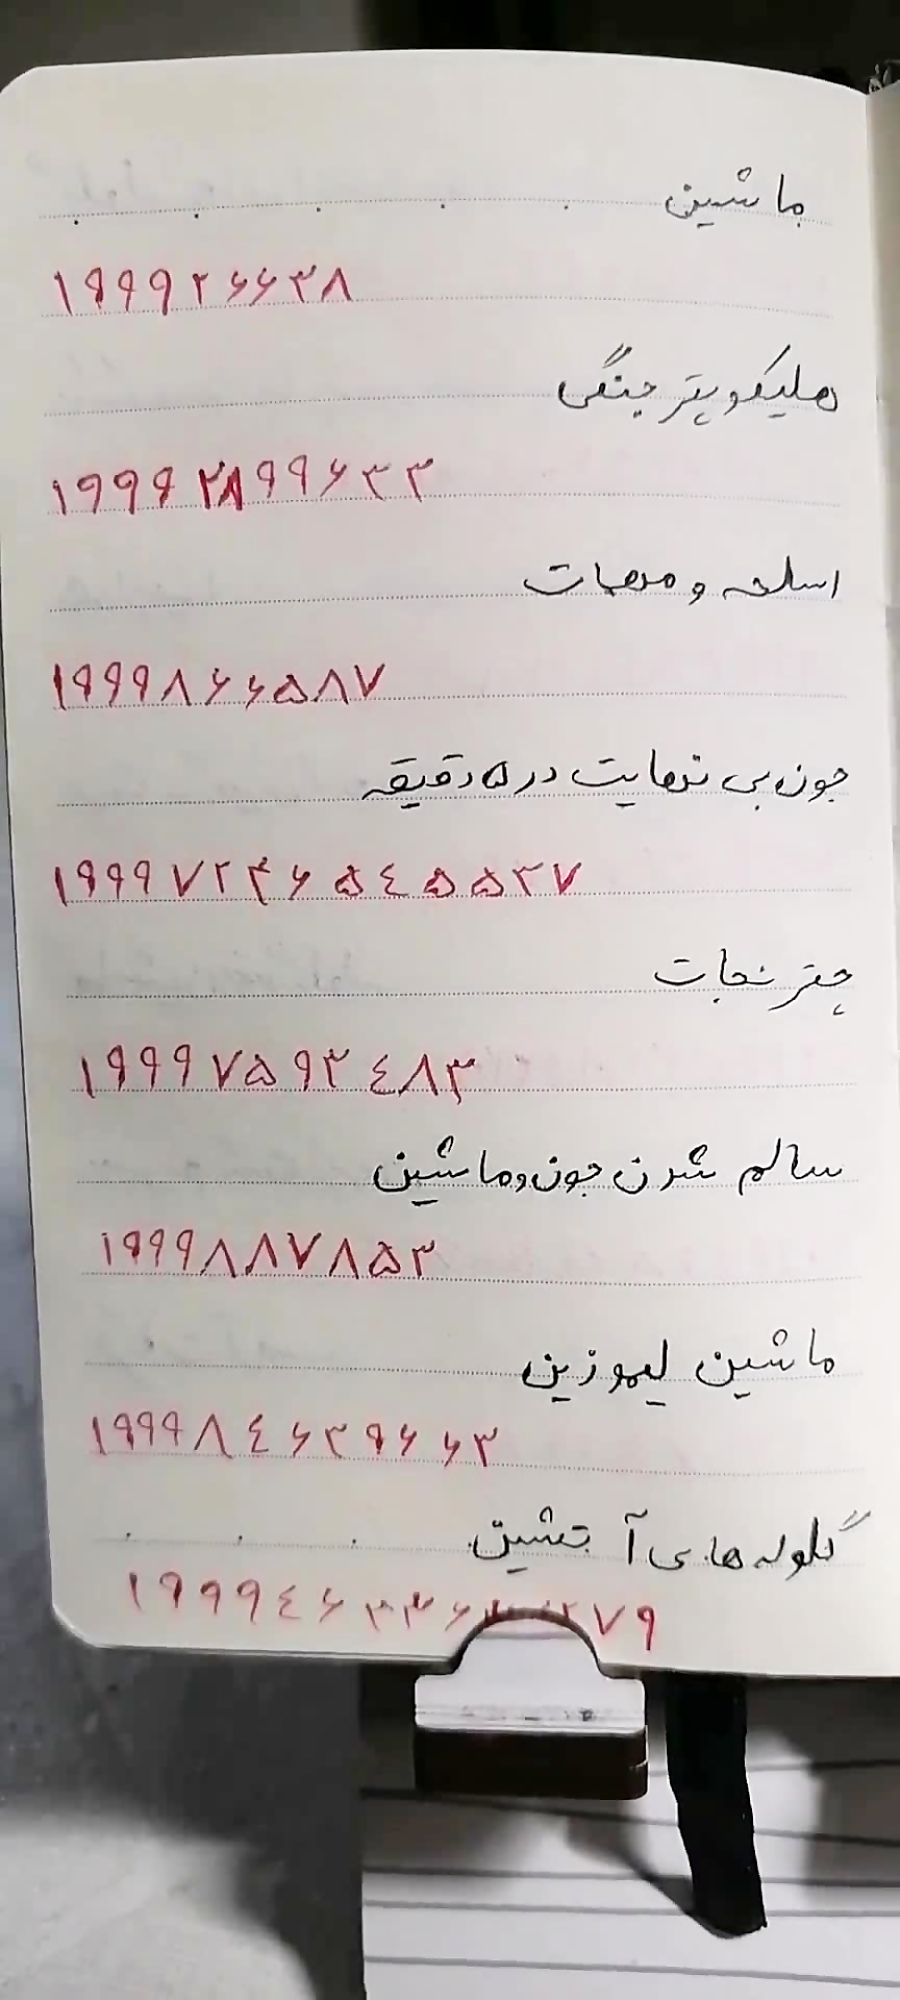 ماشین
۱۹۹۹۲۶۶۳۸
هلیکوپتر جنگی
۱۹۹۹۲۸۹۹۶۳۳
اسلحه و مهمات
۱۹۹۹۸۶۶۵۸۷
جون بی نهایت در ۵ دقیقه
۱۹۹۹۷۲۴۶۵۴۵۵۳۷
چتر نجات
۱۹۹۹۷۵۹۳۴۸۳
سالم شدن جون و ماشین
۱۹۹۹۸۸۷۸۵۳
ماشین لیموزین
۱۹۹۹۸۴۶۳۹۶۶۳
گلوله های آتشین